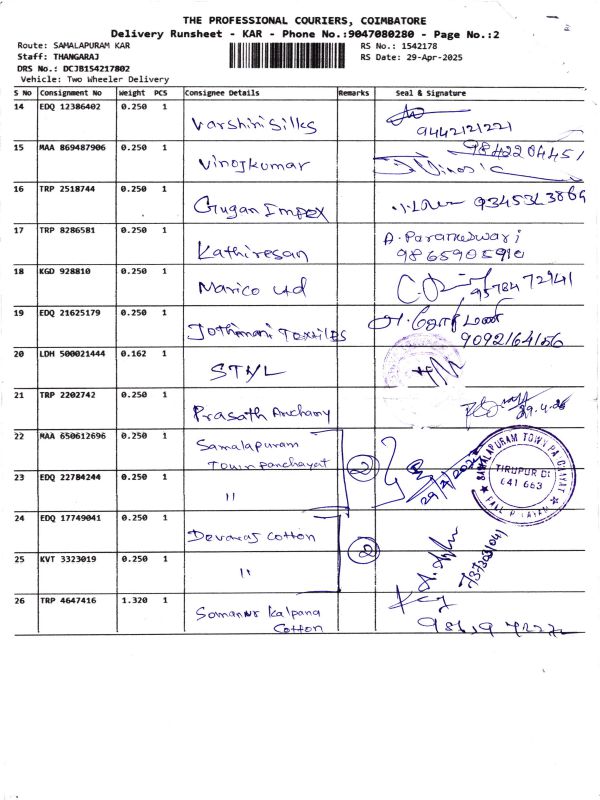 THE PROFESSIONAL COURIERS, COIMBATORE
Delivery Runsheet - KAR - Phone No.:9047080280 - Page No.:2
Route: SAMALAPURAM KAR
Staff: THANGARAJ
DRS No.: DCJB154217802
Vehicle: Two Wheeler Delivery
RS No.: 1542178
RS Date: 29-Apr-2025
S No Consignment No Weight PCS Consignee Details Remarks Seal & Signature
14 EDQ 12386402 0.250 1 Varshini Silks 9442121221
15 MAA 869487906 0.250 1 Vinojkumar 9842204451
16 TRP 2518744 0.250 1 Gugan Impex
17 TRP 8286581 0.250 1 Kathiresan A. Parameshwari
9865905910
18 KGD 928810 0.250 1 Marico Ltd
19 EDQ 21625179 0.250 1 Jothimani Textiles
9092164156
20 LDH 500021444 0.162 1
21 TRP 2202742 0.250 1 Prasath Anchamy
22 MAA 650612696 0.250 1 Samalapuram
Town panchayat 2
SAMALAPURAM TOWN PANCHAYAT
TIRUPUR
641 663
23 EDQ 22784244 0.250 1 "
24 EDQ 17749041 0.250 1 Devaraj Cotton 2
25 KVT 3323019 0.250 1 "
26 TRP 4647416 1.320 1 Somanur Kalpana
Cotton